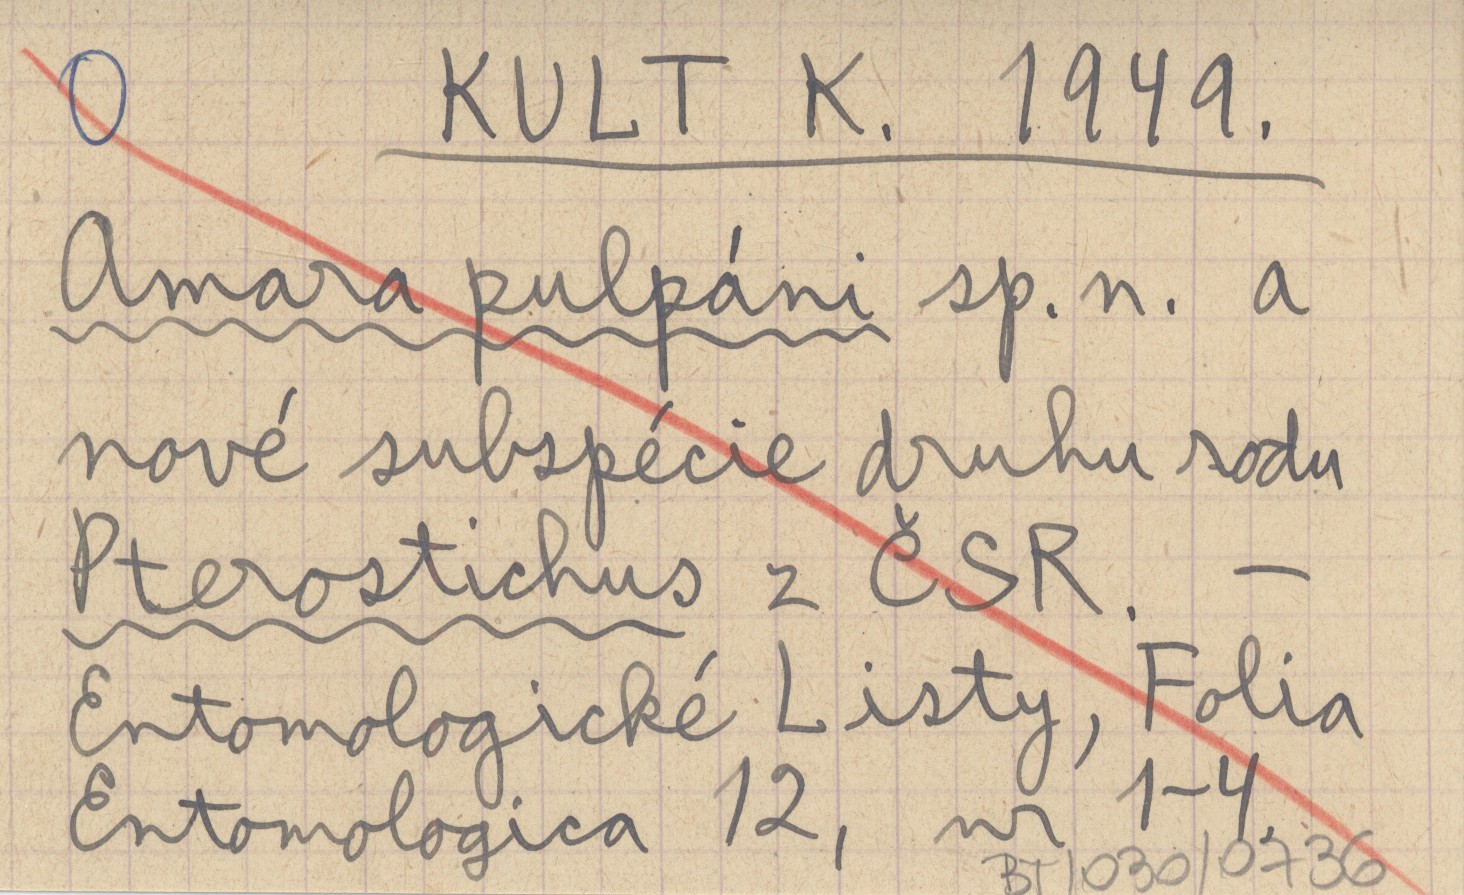 O KULT K. 1949.
Amara pulpáni sp. n. a
nové subspécie druhu rodu
Pterostichus z ČSR. –
Entomologické Listy, Folia
Entomologica 12, nr 1-4.
BT/030/0736